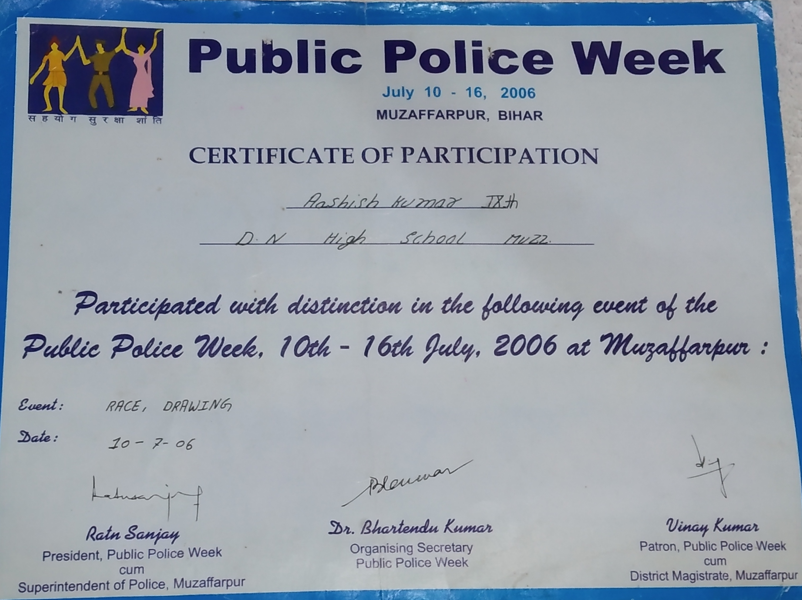 Public Police Week
July 10 - 16, 2006
MUZAFFARPUR, BIHAR
सहयोग सुरक्षा शांति
CERTIFICATE OF PARTICIPATION
Aashish Kumar IXth
D.N High School Muzz.
Participated with distinction in the following event of the
Public Police Week, 10th - 16th July, 2006 at Muzaffarpur :
Event: RACE, DRAWING
Date: 10-7-06
Ratn Sanjay
President, Public Police Week
cum
Superintendent of Police, Muzaffarpur
Dr. Bhartendu Kumar
Organising Secretary
Public Police Week
Vinay Kumar
Patron, Public Police Week
cum
District Magistrate, Muzaffarpur